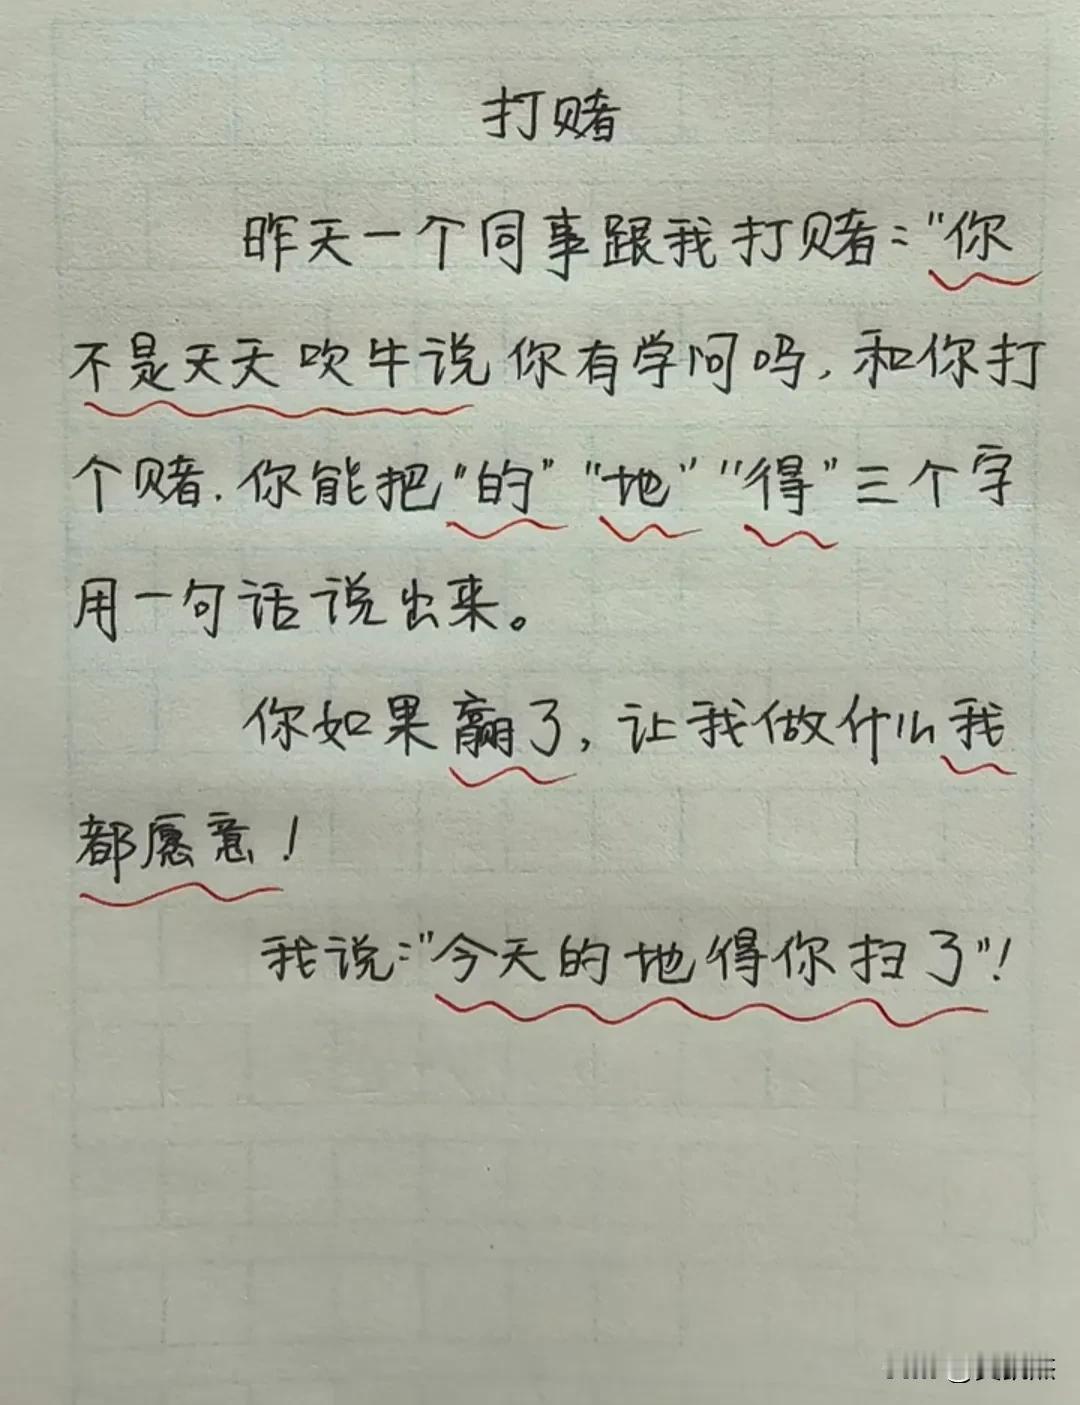 打赌
昨天一个同事跟我打赌:"你
不是天天吹牛说你有学问吗,和你打
个赌.你能把"的""地""得"三个字
用一句话说出来。
你如果赢了,让我做什么我
都愿意!
我说:"今天的地得你扫了"!